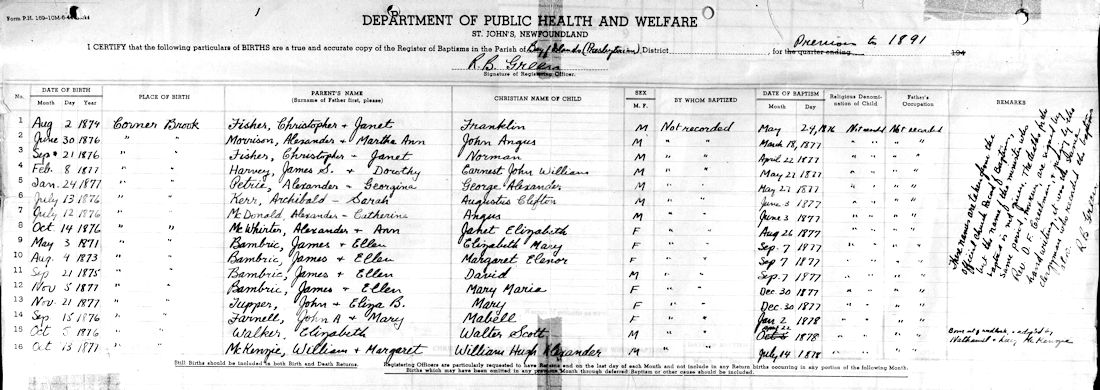 Form P.H. 169-10M-6-
DEPARTMENT OF PUBLIC HEALTH AND WELFARE
ST. JOHN'S, NEWFOUNDLAND
I CERTIFY that the following particulars of BIRTHS are a true and accurate copy of the Register of Baptisms in the Parish of Bay of Islands (Presbyterian) District, for the quarter ending Previous to 1891 194
R. B. Green
Signature of Registering Officer.
No. DATE OF BIRTH Month Day Year PLACE OF BIRTH PARENT'S NAME (Surname of Father first, please) CHRISTIAN NAME OF CHILD SEX M. F. BY WHOM BAPTIZED DATE OF BAPTISM Month Day Religious Denomination of Child Father's Occupation REMARKS
1 Aug 2 1874 Corner Brook Fisher, Christopher + Janet Franklin M Not recorded May 24, 1876 Not recorded
2 June 30 1876 " " Morrison, Alexander + Martha Ann John Angus M " " March 18, 1877 " " " "
3 Sep. 21 1876 " " Fisher, Christopher - Janet Norman M " " April 22 1877 " " " "
4 Feb. 8 1877 " " Harvey, James S. + Dorothy Earnest John Williams M " " May 21 1877 " " " "
5 Jan. 24 1877 " " Petrie, Alexander - Georgina George Alexander M " " May 27 1877 " " " "
6 July 13 1876 " " Kerr, Archibald - Sarah Augustus Clefton M " " June 3 1877 " " " "
7 July 12 1876 " " McDonald, Alexander - Catherine Angus M " " June 3 1877 " " " "
8 Oct 14 1876 " " McWhirter, Alexander + Ann Janet Elizabeth F " " Aug 26 1877 " " " "
9 May 3 1871 " " Bambric, James + Ellen Elizabeth Mary F " " Sep. 7 1877 " " " "
10 Aug 4 1873 " " Bambric, James + Ellen Margaret Elenor F " " Sep 7 1877 " " " "
11 Sep 21 1875 " " Bambric, James + Ellen David M " " Sep. 7 1877 " " " "
12 Nov 5 1877 " " Bambric, James + Ellen Mary Maria F " " Dec. 30 1877 " " " "
13 Nov 21 1877 " " Tupper, John + Eliza B. Mary F " " Dec. 30 1877 " " " "
14 Sep 15 1876 " " Farnell, John A + Mary Mabell F " " Jan 2 1878 " " " "
15 Oct 5 1876 " " Walker, Elizabeth Walter Scott M " " 1878 " " " "
16 Oct 13 1877 McKenzie, William + Margaret William Hugh Alexander M " " July 14 1878 " " " "
These names are taken from the official Church Record of Baptism, but the name of the minister who baptized is not given. The deaths, for the same period, however, are signed by Rev. D. F. Creelman, + judging by the handwriting, it was the same clergyman who recorded the baptisms also. R B Green
+ adopted by
Nathaniel + Lucy McKenzie
Still Births should be included in both Birth and Death Returns.
Registering Officers are particularly requested to have Returns end on the last day of each Month and not include in any Return births occurring in any portion of the following Month.
Births which may have been omitted in any previous Month through deferred Baptism or other cause should be included.